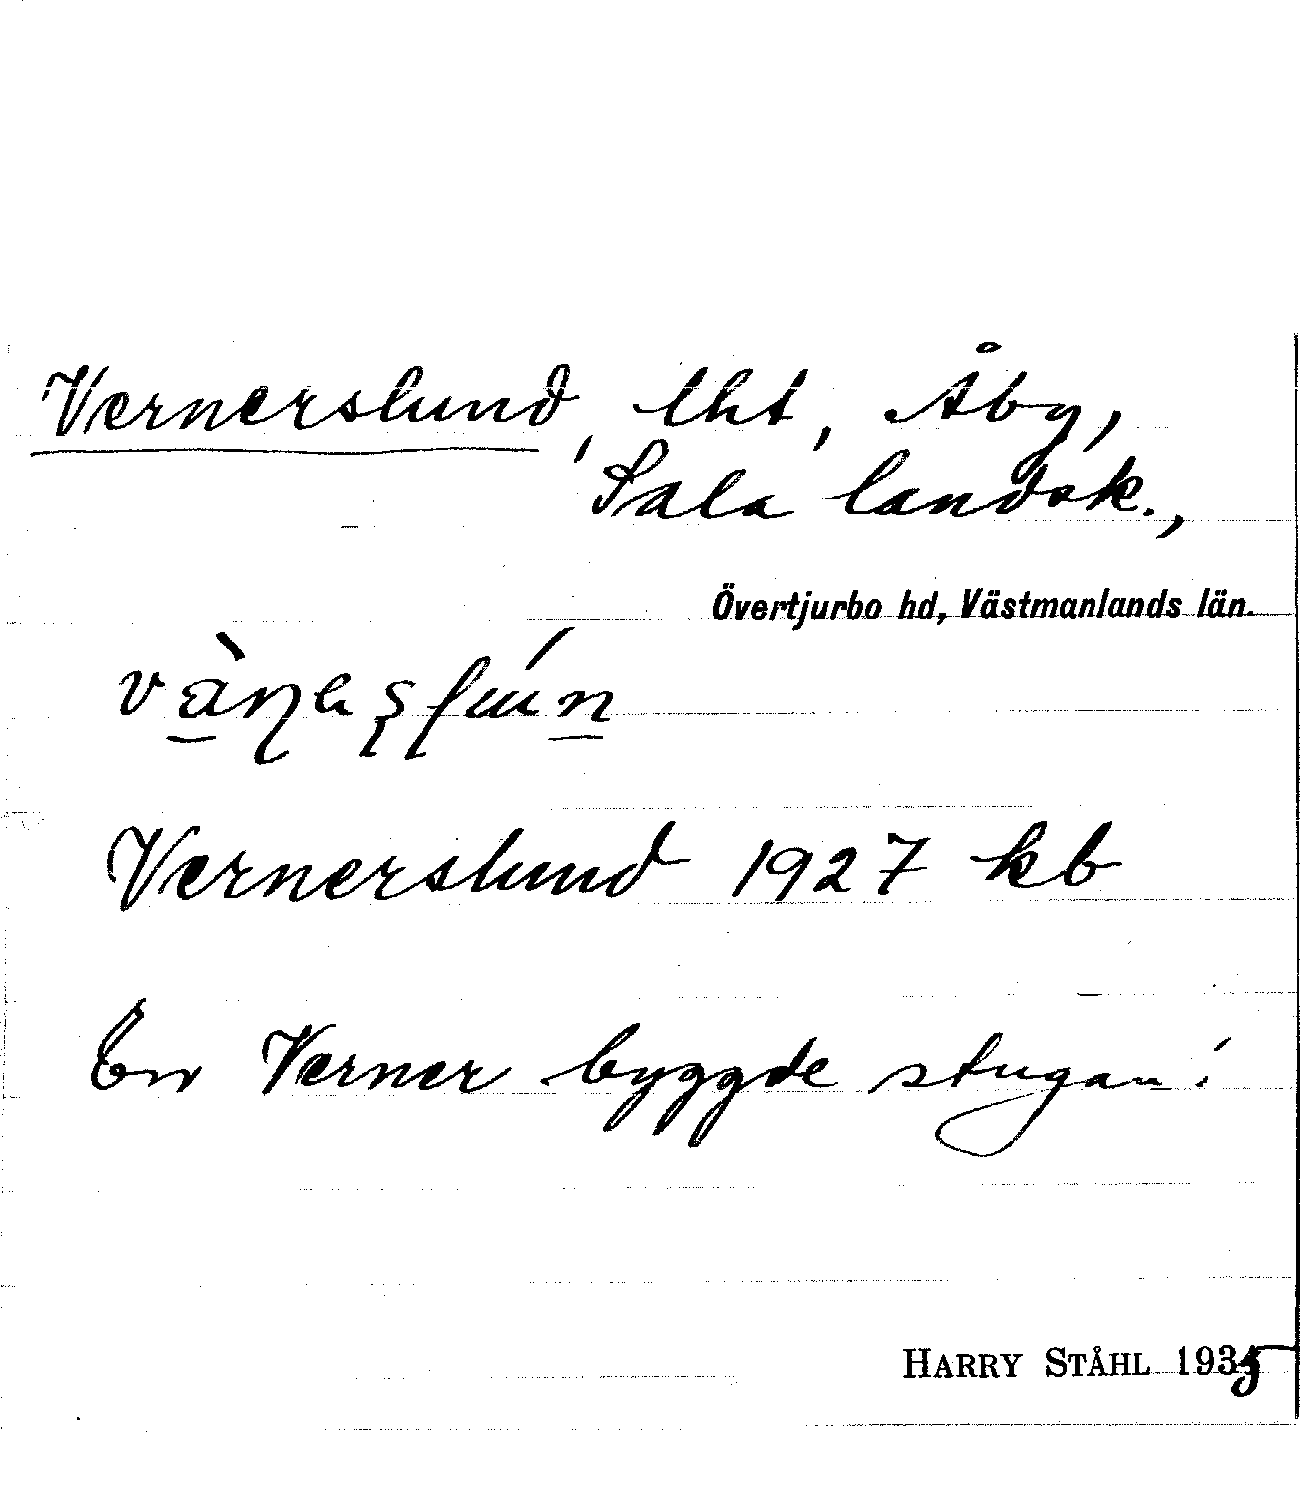 Vernerslund, lht, Åby,
Sala landsk.,
Övertjurbo hd, Västmanlands län.
Vernerslund 1927 kb
En Verner byggde stugan!
HARRY STÅHL 1935